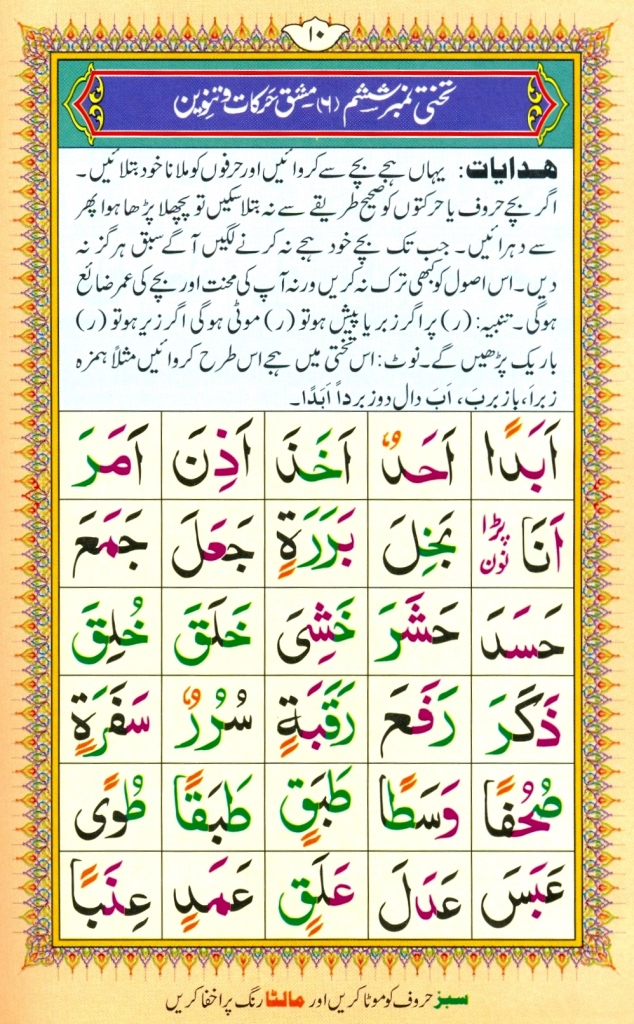 ۱۰
تختی نمبر ششم (۶) مشق حرکات و تنوین
هدایات: یہاں ہجے بچے سے کروائیں اور حرفوں کو ملانا خود بتلائیں۔
اگر بچے حروف یا حرکتوں کو صحیح طریقے سے نہ بتلا سکیں تو پچھلا پڑھا ہوا پھر
سے دہرائیں۔ جب تک بچے خود ہجے نہ کرنے لگیں آگے سبق ہرگز نہ
دیں۔ اس اصول کو کبھی ترک نہ کریں ورنہ آپ کی محنت اور بچے کی عمر ضائع
ہوگی۔ تنبیہ: (ر) پر اگر زبر یا پیش ہو تو (ر) موٹی ہوگی اگر زیر ہو تو (ر)
باریک پڑھیں گے۔ نوٹ: اس تختی میں ہجے اس طرح کروائیں مثلاً ہمزہ
زبر اَ، با زبر بَ، اَبَ دال دو زبر داً اَبَدًا۔
اَبَدًا اَحَدٌ اَخَذَ اَذِنَ اَمَرَ
اَنَا پڑا نون بَخِلَ بَرَرَةٍ جَعَلَ جَمَعَ
حَسَدَ حَشَرَ خَشِیَ خَلَقَ خُلِقَ
ذَكَرَ رَفَعَ رَقَبَةٍ سُرُرٌ سَفَرَةٍ
صُحُفًا وَسَطًا طَبَقٍ طَبَقًا طُوًی
عَبَسَ عَدَلَ عَلَقٍ عَمَدٍ عِنَبًا
سبز حروف کو موٹا کریں اور مالٹا رنگ پر اخفا کریں